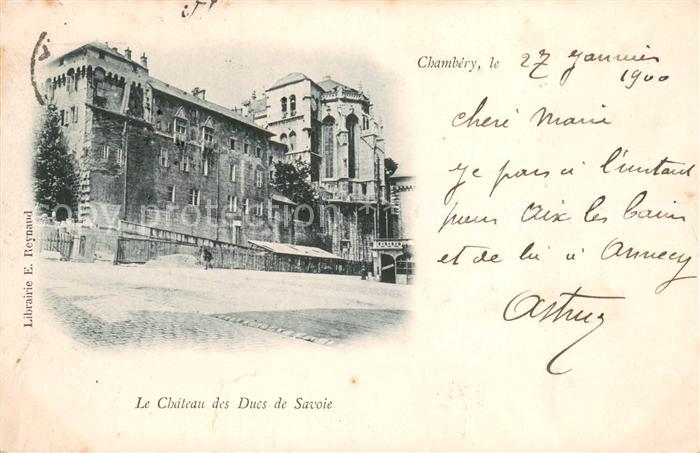 Chambéry, le 27 Janvier
1900
Chère Marie
Je pars à l'instant
pour Aix les bains
et de là à Annecy
Astruz
Librairie E. Reynaud
Le Château des Ducs de Savoie